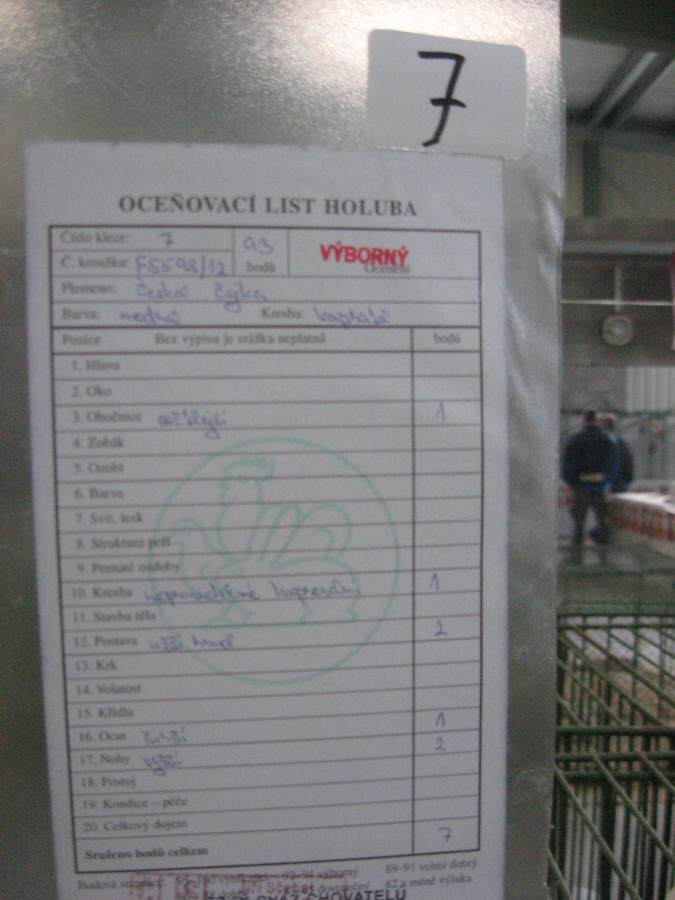 7
OCEŇOVACÍ LIST HOLUBA
Číslo klece: 7
93 bodů
VÝBORNÝ
Ocenění
Č. kroužku:
Plemeno: Česká čejka
Barva: modrá Kresba: kapratá
Pozice Bez výpisu je srážka neplatná bodů
1. Hlava
2. Oko
3. Obočnice 1
4. Zobák
5. Ozobí
6. Barva
7. Svit, lesk
8. Struktura peří
9. Pernaté ozdoby
10. Kresba 1
11. Stavba těla
12. Postava užší 2
13. Krk
14. Volatost
15. Křídla
16. Ocas širší 1
17. Nohy vyšší 2
18. Postoj
19. Kondice – péče
20. Celkový dojem
Sraženo bodů celkem 7
92-94 výborný 89-91 velmi dobrý
82 a méně výluka
CHOVATELŮ